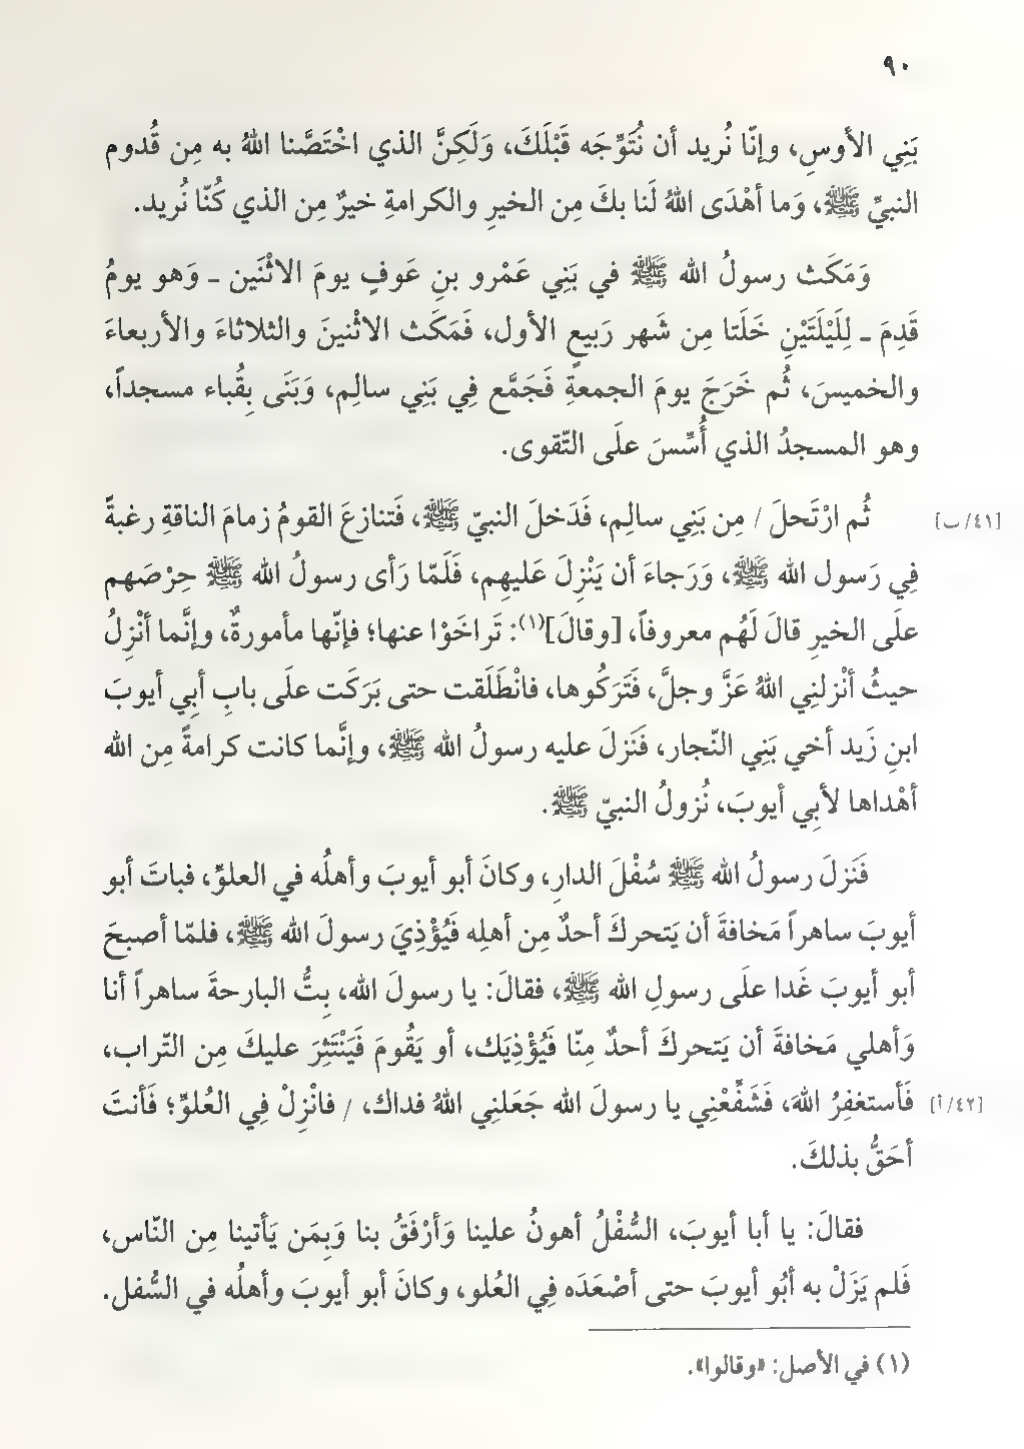 ٩٠
بَنِي الأوسِ، وإنّا نُريد أن نُتَوِّجَه قَبْلَكَ، وَلَكِنَّ الذي اخْتَصَّنا اللهُ به مِن قُدوم
النبيِّ ﷺ، وَما أهْدَى اللهُ لَنا بكَ مِن الخيرِ والكرامةِ خيرٌ مِن الذي كُنّا نُريد.
وَمَكَث رسولُ الله ﷺ في بَنِي عَمْرو بنِ عَوفٍ يومَ الاثْنَين ـ وَهو يومُ
قَدِمَ ـ لِلَيْلَتَيْنِ خَلَتا مِن شَهر رَبيعٍ الأول، فَمَكَث الاثْنينَ والثلاثاءَ والأربعاءَ
والخميسَ، ثُم خَرَجَ يومَ الجمعةِ فَجَمَّع فِي بَنِي سالِم، وَبَنَى بِقُباء مسجداً،
وهو المسجدُ الذي أُسِّسَ علَى التّقوى.
ثُم ارْتَحلَ / مِن بَنِي سالِم، فَدَخلَ النبيّ ﷺ، فَتنازعَ القومُ زمامَ الناقةِ رغبةً [٤١/ب]
فِي رَسول الله ﷺ، وَرَجاءَ أن يَنْزِلَ عَليهِم، فَلَمّا رَأى رسولُ الله ﷺ حِرْصَهم
علَى الخيرِ قالَ لَهُم معروفاً، [وقالَ](١): تَراخَوْا عنها؛ فإنّها مأمورةٌ، وإنَّما أنْزِلُ
حيثُ أنْزلنِي اللهُ عَزَّ وجلَّ، فَتَرَكُوها، فانْطَلَقت حتى بَرَكَت علَى بابِ أبِي أيوبَ
ابنِ زَيد أخي بَنِي النّجار، فَنَزلَ عليه رسولُ الله ﷺ، وإنَّما كانت كرامةً مِن الله
أهْداها لأبِي أيوبَ، نُزولُ النبيّ ﷺ.
فَنَزلَ رسولُ الله ﷺ سُفْلَ الدارِ، وكانَ أبو أيوبَ وأهلُه في العلوِّ، فباتَ أبو
أيوبَ ساهراً مَخافةَ أن يَتحركَ أحدٌ مِن أهلِه فَيُؤْذِيَ رسولَ الله ﷺ، فلمّا أصبحَ
أبو أيوبَ غَدا علَى رسولِ الله ﷺ، فقالَ: يا رسولَ الله، بِتُّ البارحةَ ساهراً أنا
وَأهلي مَخافةَ أن يَتحركَ أحدٌ مِنّا فَيُؤْذِيَك، أو يَقُومَ فَيَنْتَثِرَ عليكَ مِن التّراب،
فَأستغفِرُ اللهَ، فَشَفِّعْنِي يا رسولَ الله جَعَلنِي اللهُ فداك، / فانْزِلْ فِي العُلوِّ؛ فَأنتَ [٤٢/أ]
أحَقُّ بذلكَ.
فقالَ: يا أبا أيوبَ، السُّفْلُ أهونُ علينا وَأرْفَقُ بنا وَبِمَن يَأتينا مِن النّاس،
فَلم يَزَلْ به أبُو أيوبَ حتى أصْعَدَه فِي العُلو، وكانَ أبو أيوبَ وأهلُه في السُّفل.
(١) في الأصل: «وقالوا».